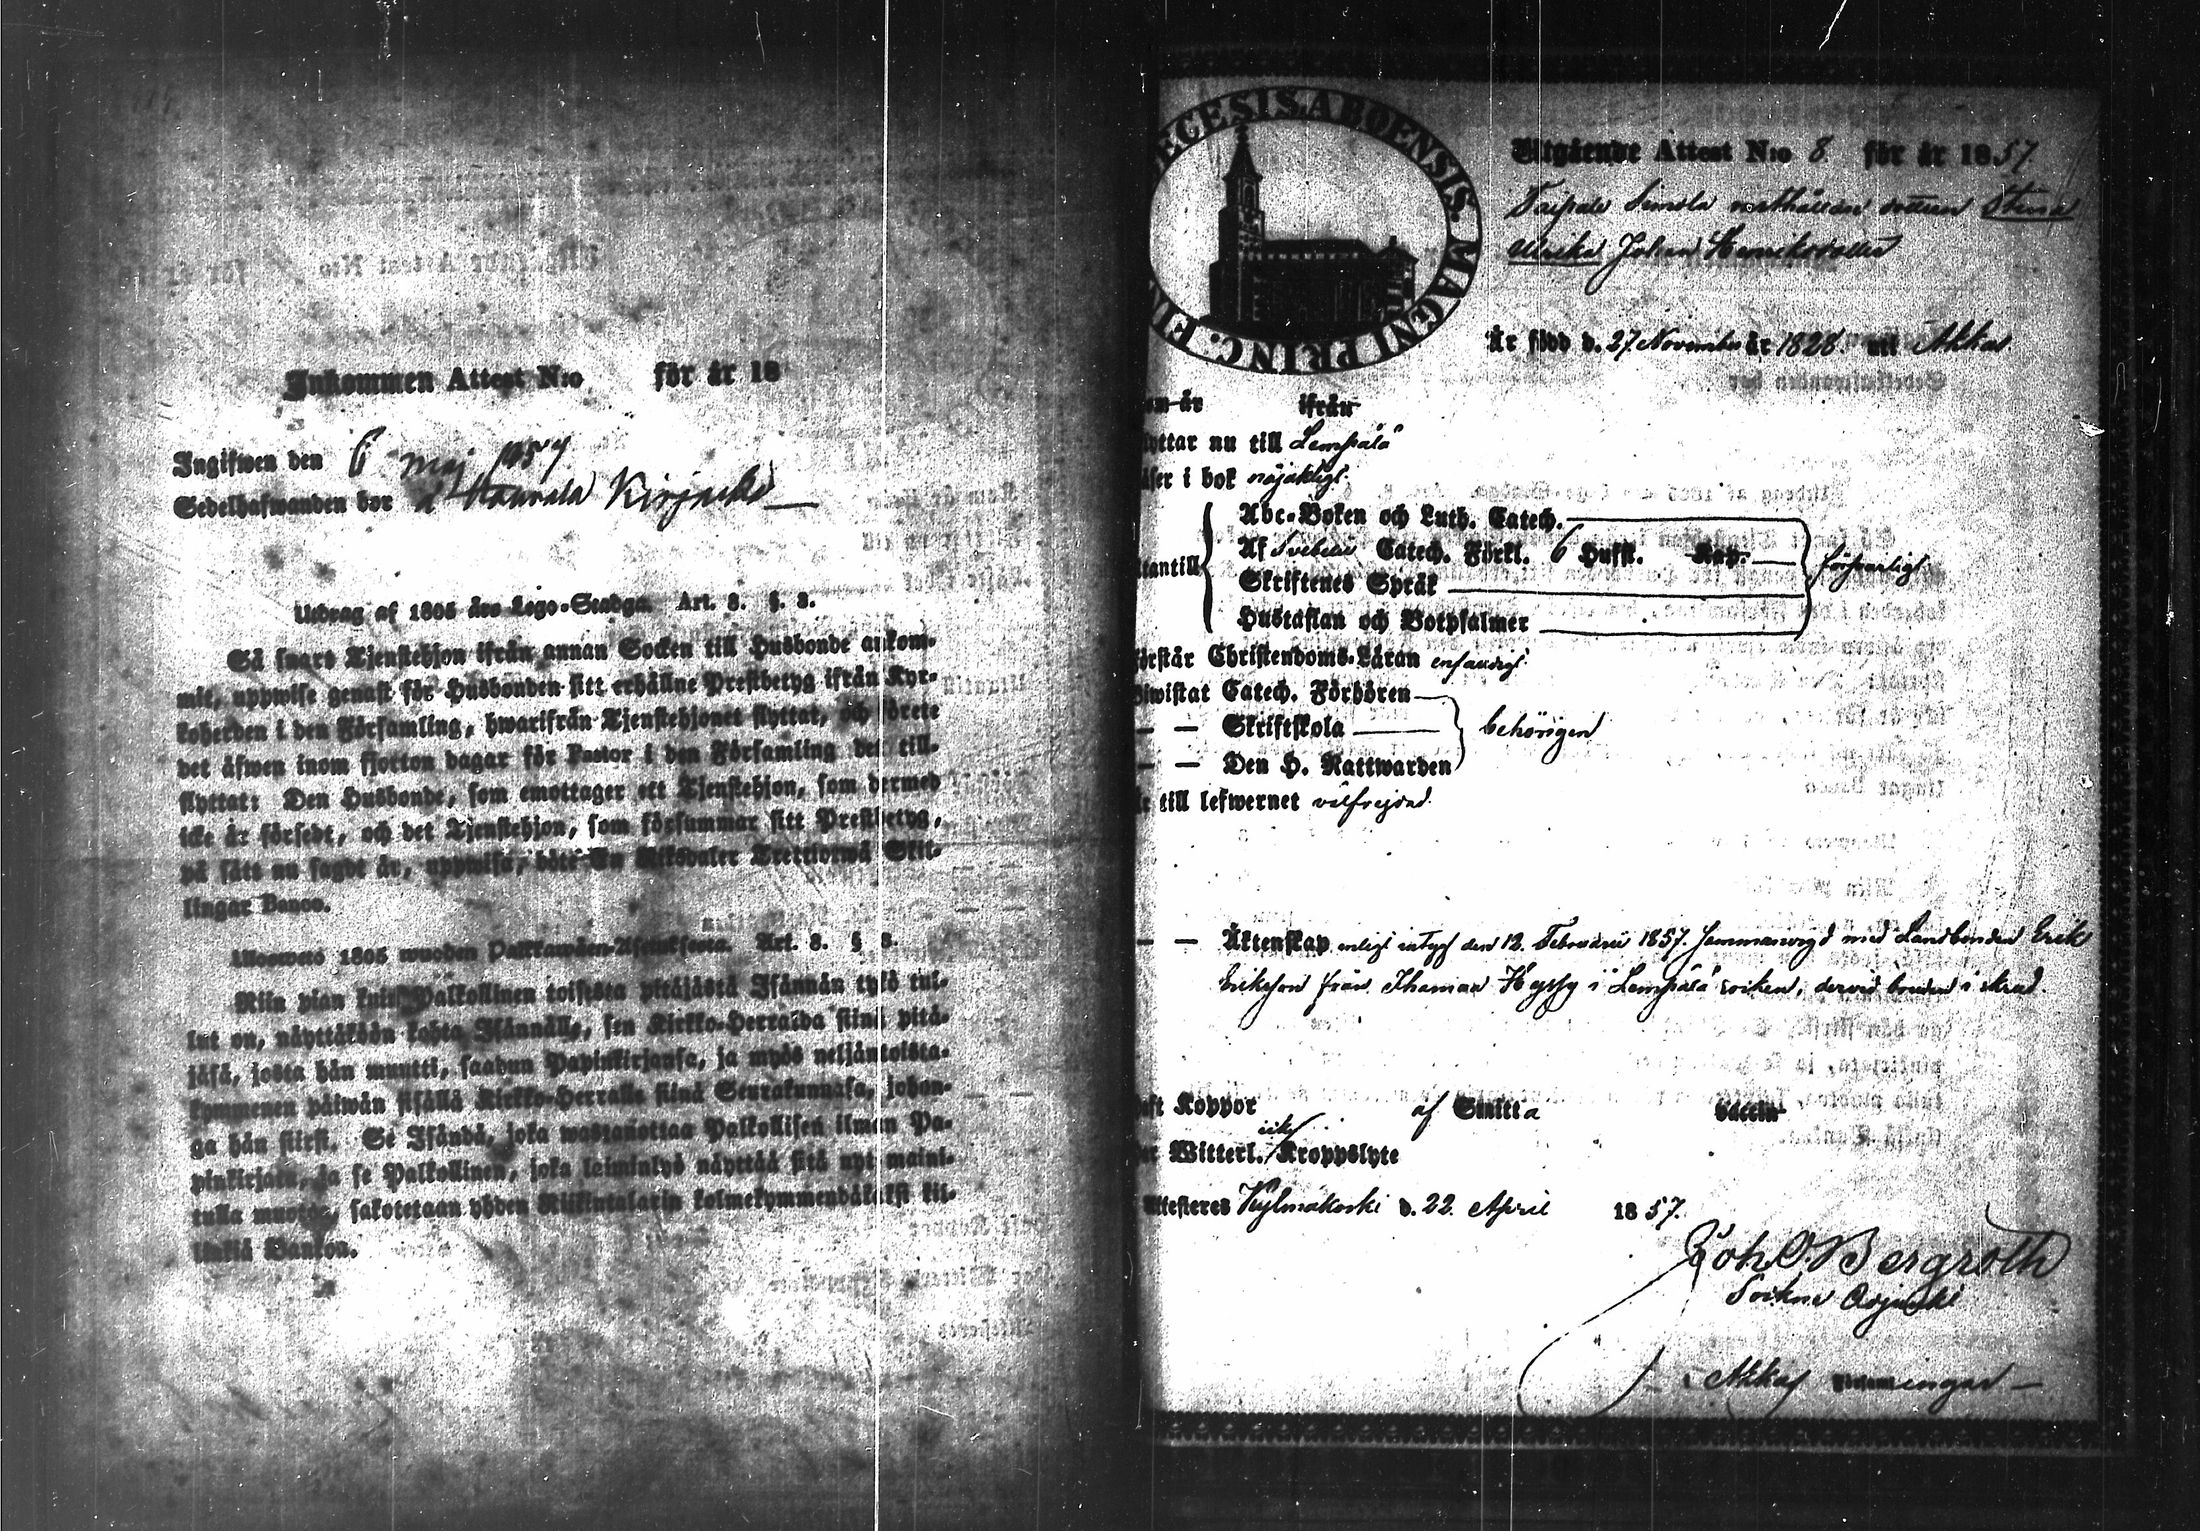 Inkommen Attest N:o för år 18
Ingifwen den 6 Maj 1857
Sedelhafwanden bor å
Utdrag af 1805 års Lego-Stadga. Art. 8. §. 3.
Så snart Tjenstehjon ifrån annan Socken till Husbonde ankom-
mit, uppwise genast för Husbonden sitt erhållne Prestbetyg ifrån Kyr-
koherden i den Församling, hwarifrån Tjenstehjonet flyttat, och förete
det äfwen inom fjorton dagar för Pastor i den Församling det till-
flyttat: Den Husbonde, som emottager ett Tjenstehjon, som dermed
icke är försedt, och det Tjenstehjon, som försummar sitt Prestbetyg,
på sätt nu sagdt är, uppwisa, böte En Riksdaler Trettiotwå Skil-
lingar Banco.
Ulosweto 1805 wuoden Palkkawäen-Asetuksesta. Art. 8. § 3.
Niin pian kuin Palkollinen toisesta pitäjästä Isännän tykö tul-
lut on, näyttäköön kohta Isännälle, sen Kirkko-Herralda siinä pitä-
jäsä, josta hän muutti, saadun Papinkirjansa, ja myös neljäntoista-
kymmenen päiwän sisällä Kirkko-Herralle siinä Seurakunnasa, johon-
ga hän siirsi. Se Isändä, joka wastanottaa Palkollisen ilman Pa-
pinkirjata, ja se Palkollinen, joka laiminlyö näyttää sitä nyt maini-
tulla muotoa, sakotetaan yhden Riikintalarin kolmekymmendäkaksi kil-
linkiä Bankon.
DIOECESIS. ABOENSIS. MAGNI PRINC. FIN
Utgående Attest N:o 8 för år 1857.
Taipale Simola dottren Stina
Ulrika Johan
Är född d. 27 November år 1828 uti Akkas
år ifrån
flyttar nu till Lempälä
läser i bok nöjaktigt.
utantill
Abc-Boken och Luth. Catech.
Af Svebelii Catech. Förkl. 6 Hufst. Kap.
Skriftenes Språk
Hustaflan och Botpsalmer
försvarligt
förstår Christendoms-Läran enfaldigt
Biwistat Catech. Förhören
— — Skriftskola
— — Den H. Nattwarden
behörigen
är till lefwernet välfrejdad.
— — Äktenskap enligt intyg den 12 Februari 1857. sammanvigd med Landbonden Erik
Eriksson från Hyssy i Lempälä socken, dervid bruden i skrud.
haft Koppor af Smitta vaccin
eller Witterl. icke Kroppslyte
Attesteres Kylmäkoski d. 22 April 1857.
Joh O Bergroth
Sockne Adjunkt
i Akkas Församlingar